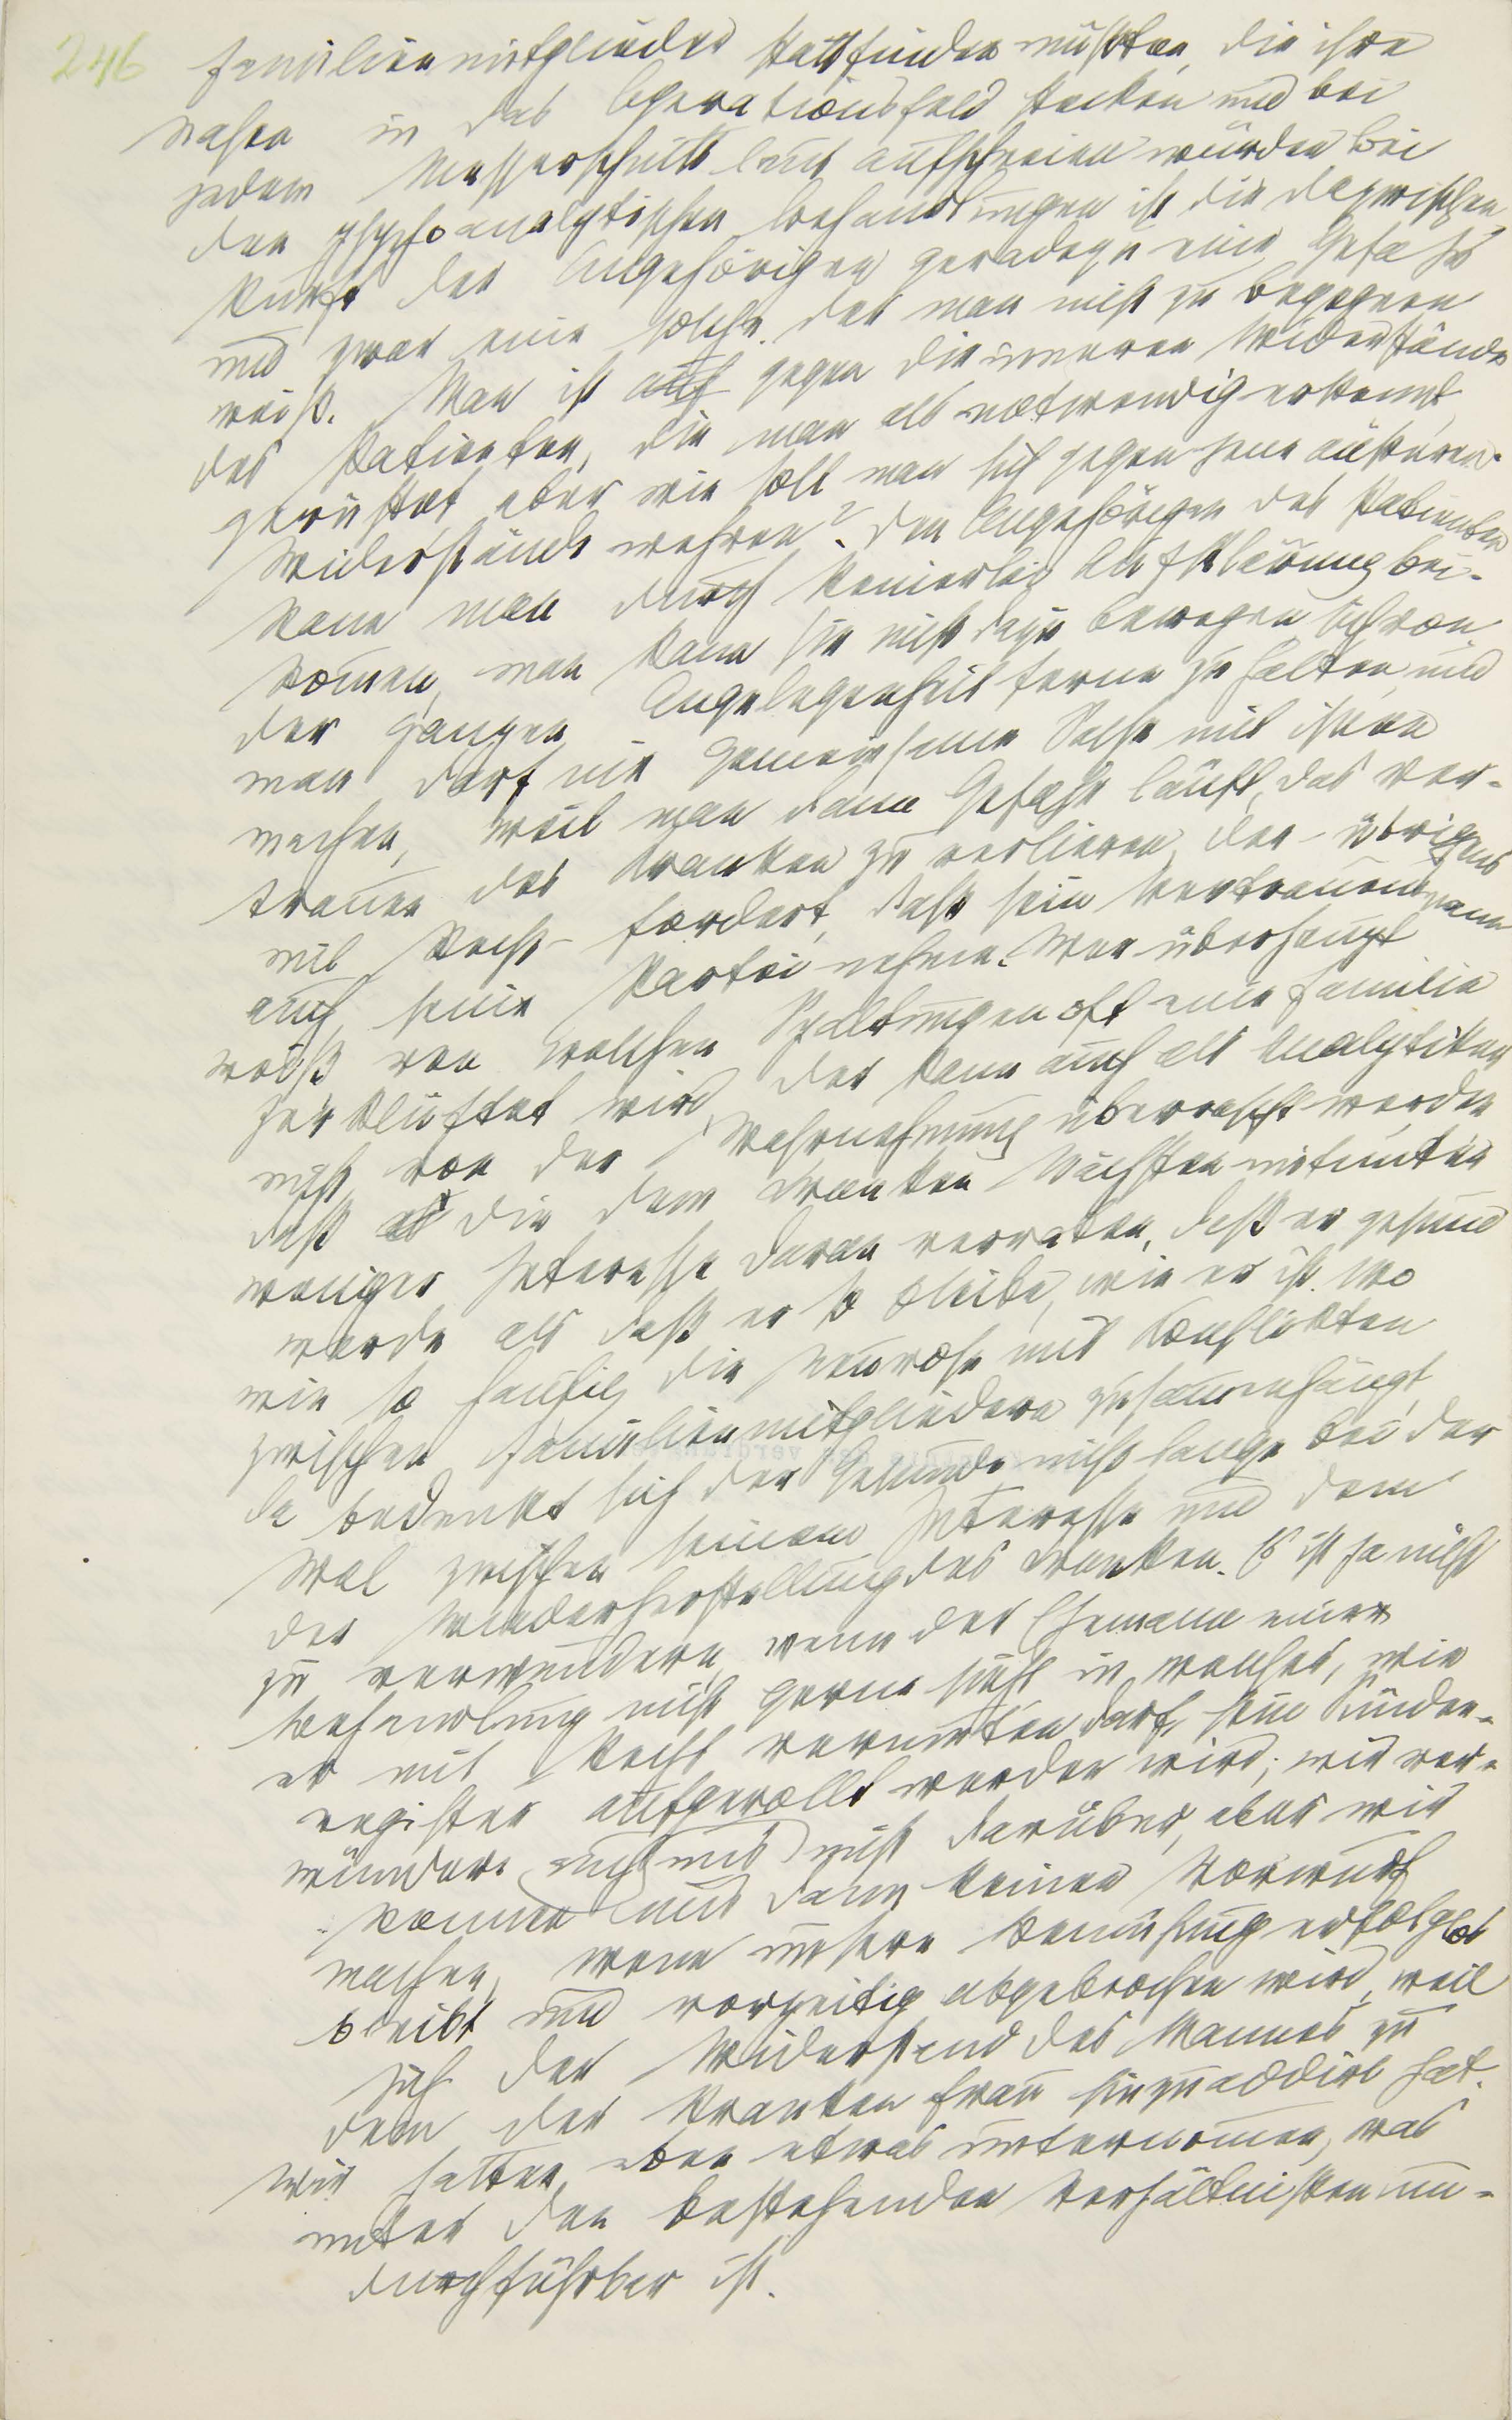 246
Familienmitglieder stattfinden müßten, die ihre
Nasen in das Operationsfeld stecken und bei
jedem Messerschnitt laut aufschreien würden bei
den psychoanalytischen Behandlungen ist die Dazwischen
kunft der Angehörigen geradezu eine Gefahr
und zwar eine solche der man nicht zu begegnen
weiß. Man ist auf gegen die inneren Widerstände
des Patienten, die man als notwendig erkennt,
gerüstet aber wie soll man sich gegen jene äußeren
Widerstände wehren? Den Angehörigen des Patienten
kann man durch keinerlei Aufklärung bei-
komen, man kann sie nicht dazu bewegen sich von
der ganzen Angelegenheit ferne zu halten, und
man darf nie gemeinsame Sache mit ihnen
machen, weil man dann Gefahr läuft, das Ver-
trauen des Kranken zu verlieren, der - übrigens
mit Recht - fordert, daß sein Vertrauensmann
auch seine Partei nehme. Wer überhaupt
weiß von welchen Spaltungen oft eine Familie
zerklüftet wird, der kann auch als Analytiker
nicht von der Wahrnehmung überrascht werden
daß die dem Kranken Nächsten mitunter
weniger Interesse daran verraten, daß er gesund
werde als daß er so bleibe, wie er ist. Wo
wie so häufig die Neurose mit Konflikten
zwischen Familienmitgliedern zusammenhängt,
da bedenkt sich der Gesunde nicht lange bei der
Wal zwischen seinem Interesse und dem
der Wiederherstellung des Kranken. Es ist ja nicht
zu verwundern, wenn der Ehemann einer
Behandlung nicht gerne sieht in welcher, wie
er mit Recht vermuten darf, sein Sünden-
register aufgerollt werden wird; wir ver-
wundern auch uns nicht darüber, aber wir
können uns dann keinen Vorwurf
machen, wenn unsere Bemühung erfolglos
bleibt und vorzeitig abgebrochen wird, weil
sich der Widerstand des Mannes zu
dem der kranken Frau hinzuaddirt hat.
Wir hatten eben etwas unternomen, was
unter den bestehenden Verhältnissen un-
durchführbar ist.